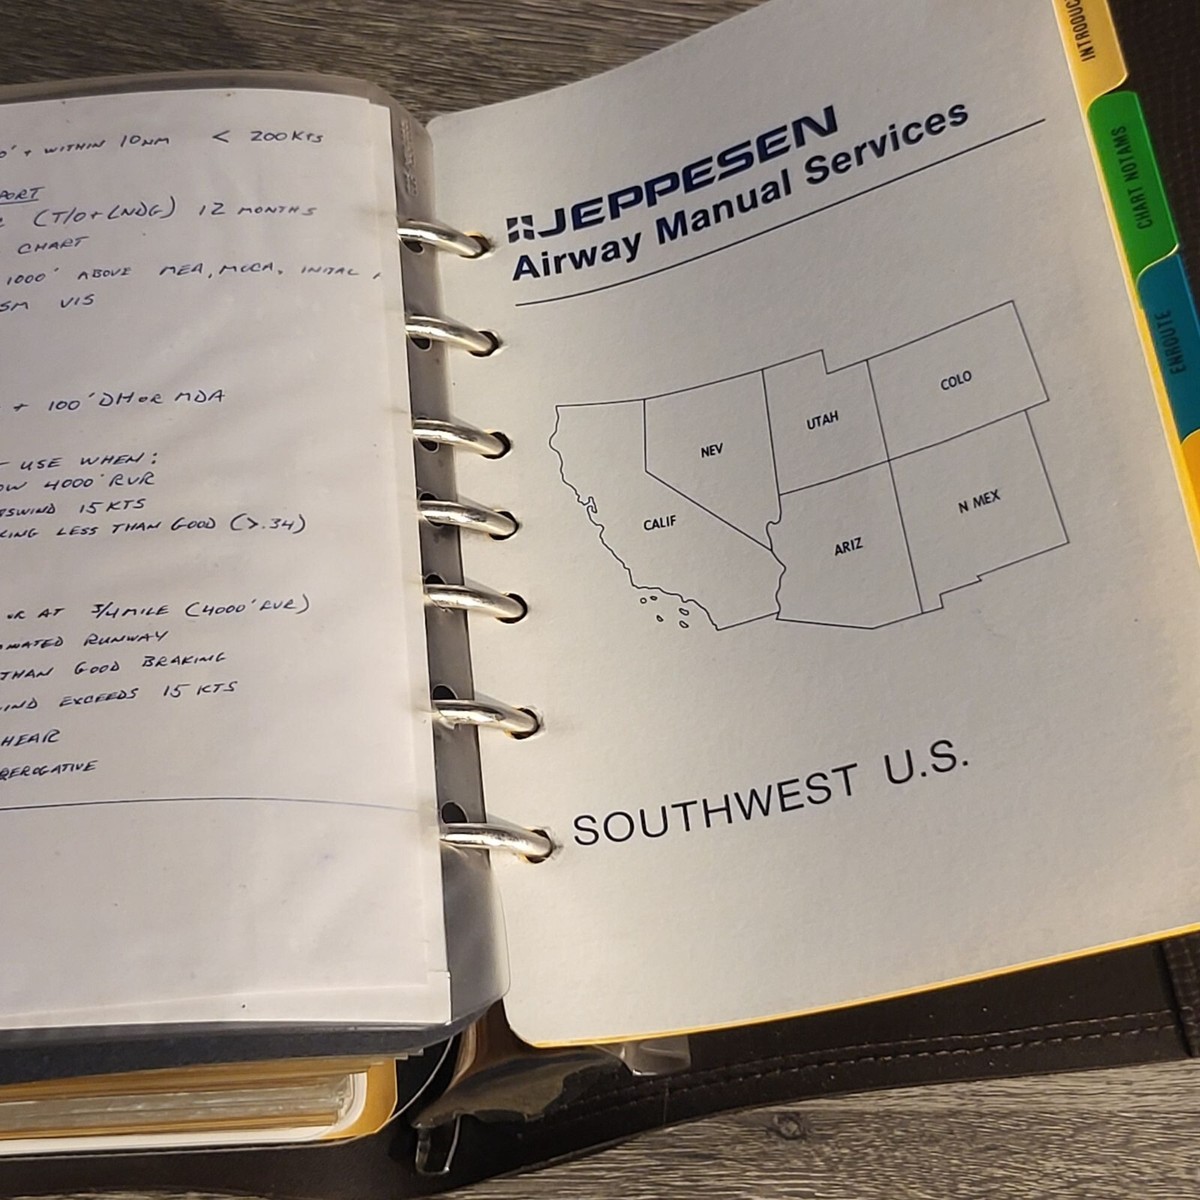 0' + WITHIN 10NM < 200 KTS
PORT
(T/O + LNDG) 12 MONTHS
CHART
1000' ABOVE MEA, MOCA, INITAL
SM VIS
+ 100' DH OR MDA
USE WHEN:
OW 4000' RVR
SSWIND 15 KTS
KING LESS THAN GOOD (>.34)
OR AT 3/4 MILE (4000' RVR)
THAN GOOD BRAKING
RUNWAY
IND EXCEEDS 15 KTS
HEAR
REROGATIVE
JEPPESEN
Airway Manual Services
COLO
UTAH
NEV
N MEX
CALIF
ARIZ
SOUTHWEST U.S.
INTRODUC
CHART NOTAMS
ENROUTE